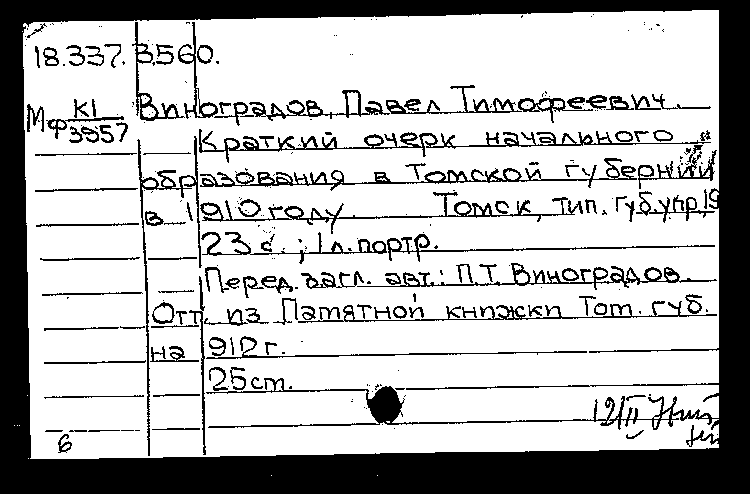 18.337.3.560.
Мф К1/3957
Виноградов, Павел Тимофеевич.
Краткий очерк начального
образования в Томской губернии
в 1910 году. Томск, тип. Губ.упр, 19
23 с.; 1 л. портр.
Перед загл. авт.: П.Т. Виноградов.
Отт. из Памятной книжки Том. губ.
на 1912 г.
25 ст.
12/II
6